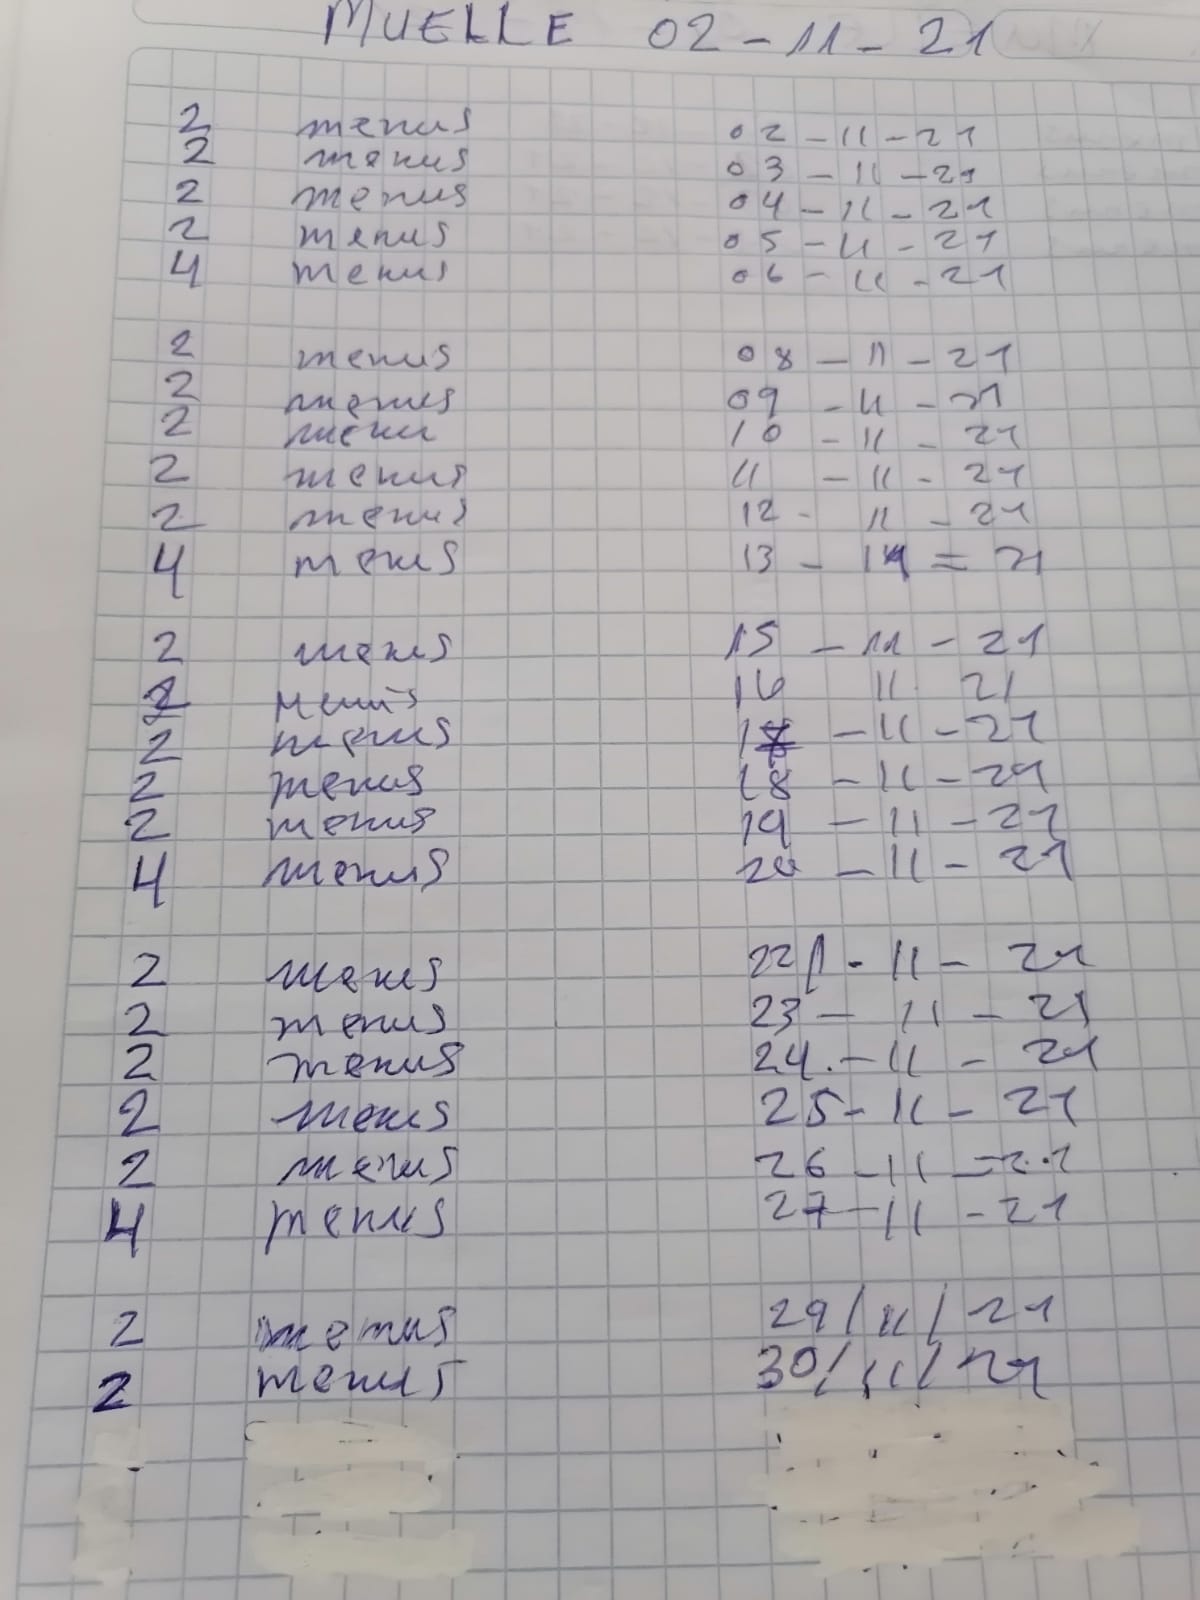 MUELLE 02-11-21
2 menus 02-11-21
2 menus 03-11-21
2 menus 04-11-21
2 menus 05-11-21
4 menus 06-11-21
2 menus 08-11-21
2 menus 09-11-21
2 menu 10-11-21
2 menus 11-11-21
2 menus 12-11-21
4 menus 13-11=21
2 menus 15-11-21
2 Menus 16 11 21
2 menus 17-11-21
2 menus 18-11-21
2 menus 19-11-21
4 menus 20-11-21
2 menus 22-11-21
2 menus 23-11-21
2 menus 24.-11-21
2 menus 25-11-21
2 menus 26-11-21
4 menus 27-11-21
2 menus 29/11/21
2 menus 30/11/21